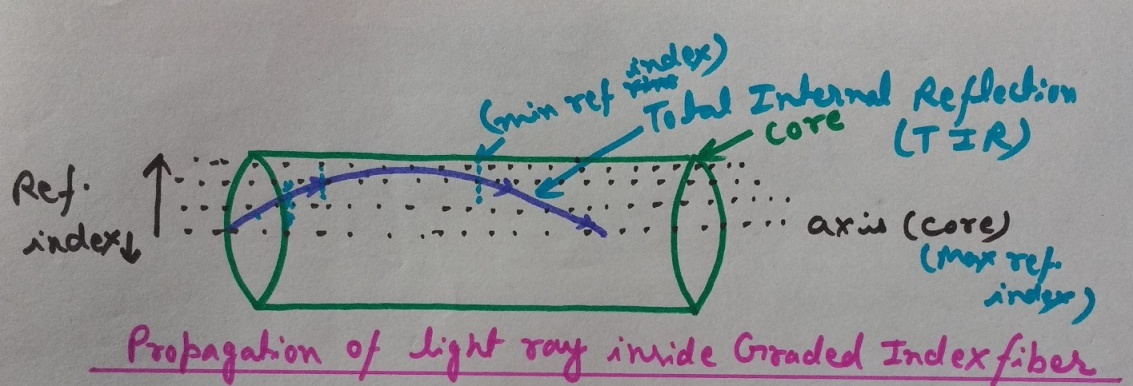 (min ref index)
Total Internal Reflection
(TIR)
core
Ref.
index↓
axis (core)
(Max ref.
index)
Propagation of light ray inside Graded Index fiber